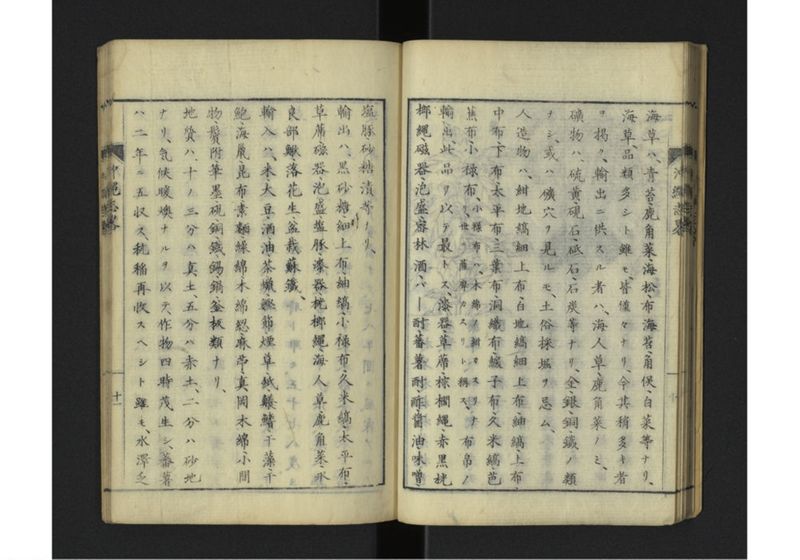 海草ハ、青苔、鹿角菜、海松、布海苔、角俣、白菜等ナリ、
海草、品類多シト雖モ、皆僅々ナリ、今其稍多キ者
ヲ掲ク、輸出ニ供スル者ハ、海人草、鹿角菜ノミ、
礦物ハ、硫黄、硯石、砥石、石炭等ナリ、金、銀、銅、鐵ノ類
ヲシ或ハ礦穴ヲ見ルモ、土俗採堀ヲ忌ム、
人造物ハ、紺地縞細上布、白地縞細上布、紬縞上布、
中布、下布、太平布、三葉布、洞織布、緞子布、久米縞、芭
蕉布、小禄布、
小禄布ハ、木綿ノ紺カスリナリ、世ニ薩摩カスリト稱ス、
布帛ノ
輸出此品ヲ以テ最トス、漆器、草席、棕櫚繩、赤黑桄
榔繩、磁器、泡盛、密林酒、ハー酎、蕃薯酎、酢、醤油、味噌
塩豚、砂糖漬等ナリ、
輸出ハ、黒砂糖、細上布、紬縞、小禄布、久米縞、太平布、
草席、磁器、泡盛、塩豚、漆器、桄榔繩、海人草、鹿角菜、永
良部鰻、落花生、盆栽蘇鐵、
輸入ハ、米、大豆、酒、油、茶、蠟、鰹節、煙草、鐵、䱋鰭、干藻、干
鮑、海鼠、昆布、素麺、綿、木綿、麻苧、真岡木綿、小間
物、鬢附、筆、墨、硯、銅、鐵、錫、鍋、釜、板類ナリ、
地質ハ、十ノ三分ハ真土、五分ハ赤土、二分ハ砂地
ナリ、気候暖燠ナルヲ以テ、作物四時茂生シ、蕃薯
ハ二年ニ五収ス、秔稲再收スヘシト雖モ、水澤乏
沖繩志略
十一